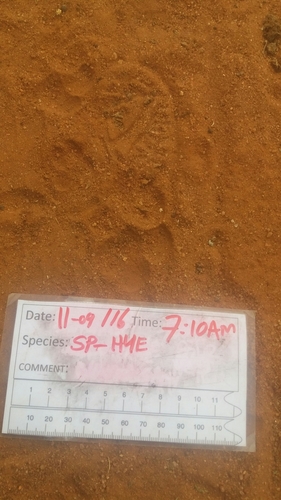 Date: 11-09/16 Time: 7:10AM
Species: SP-HYE
COMMENT:
1 2 3 4 5 6 7 8 9 10 11
10 20 30 40 50 60 70 80 90 100 110